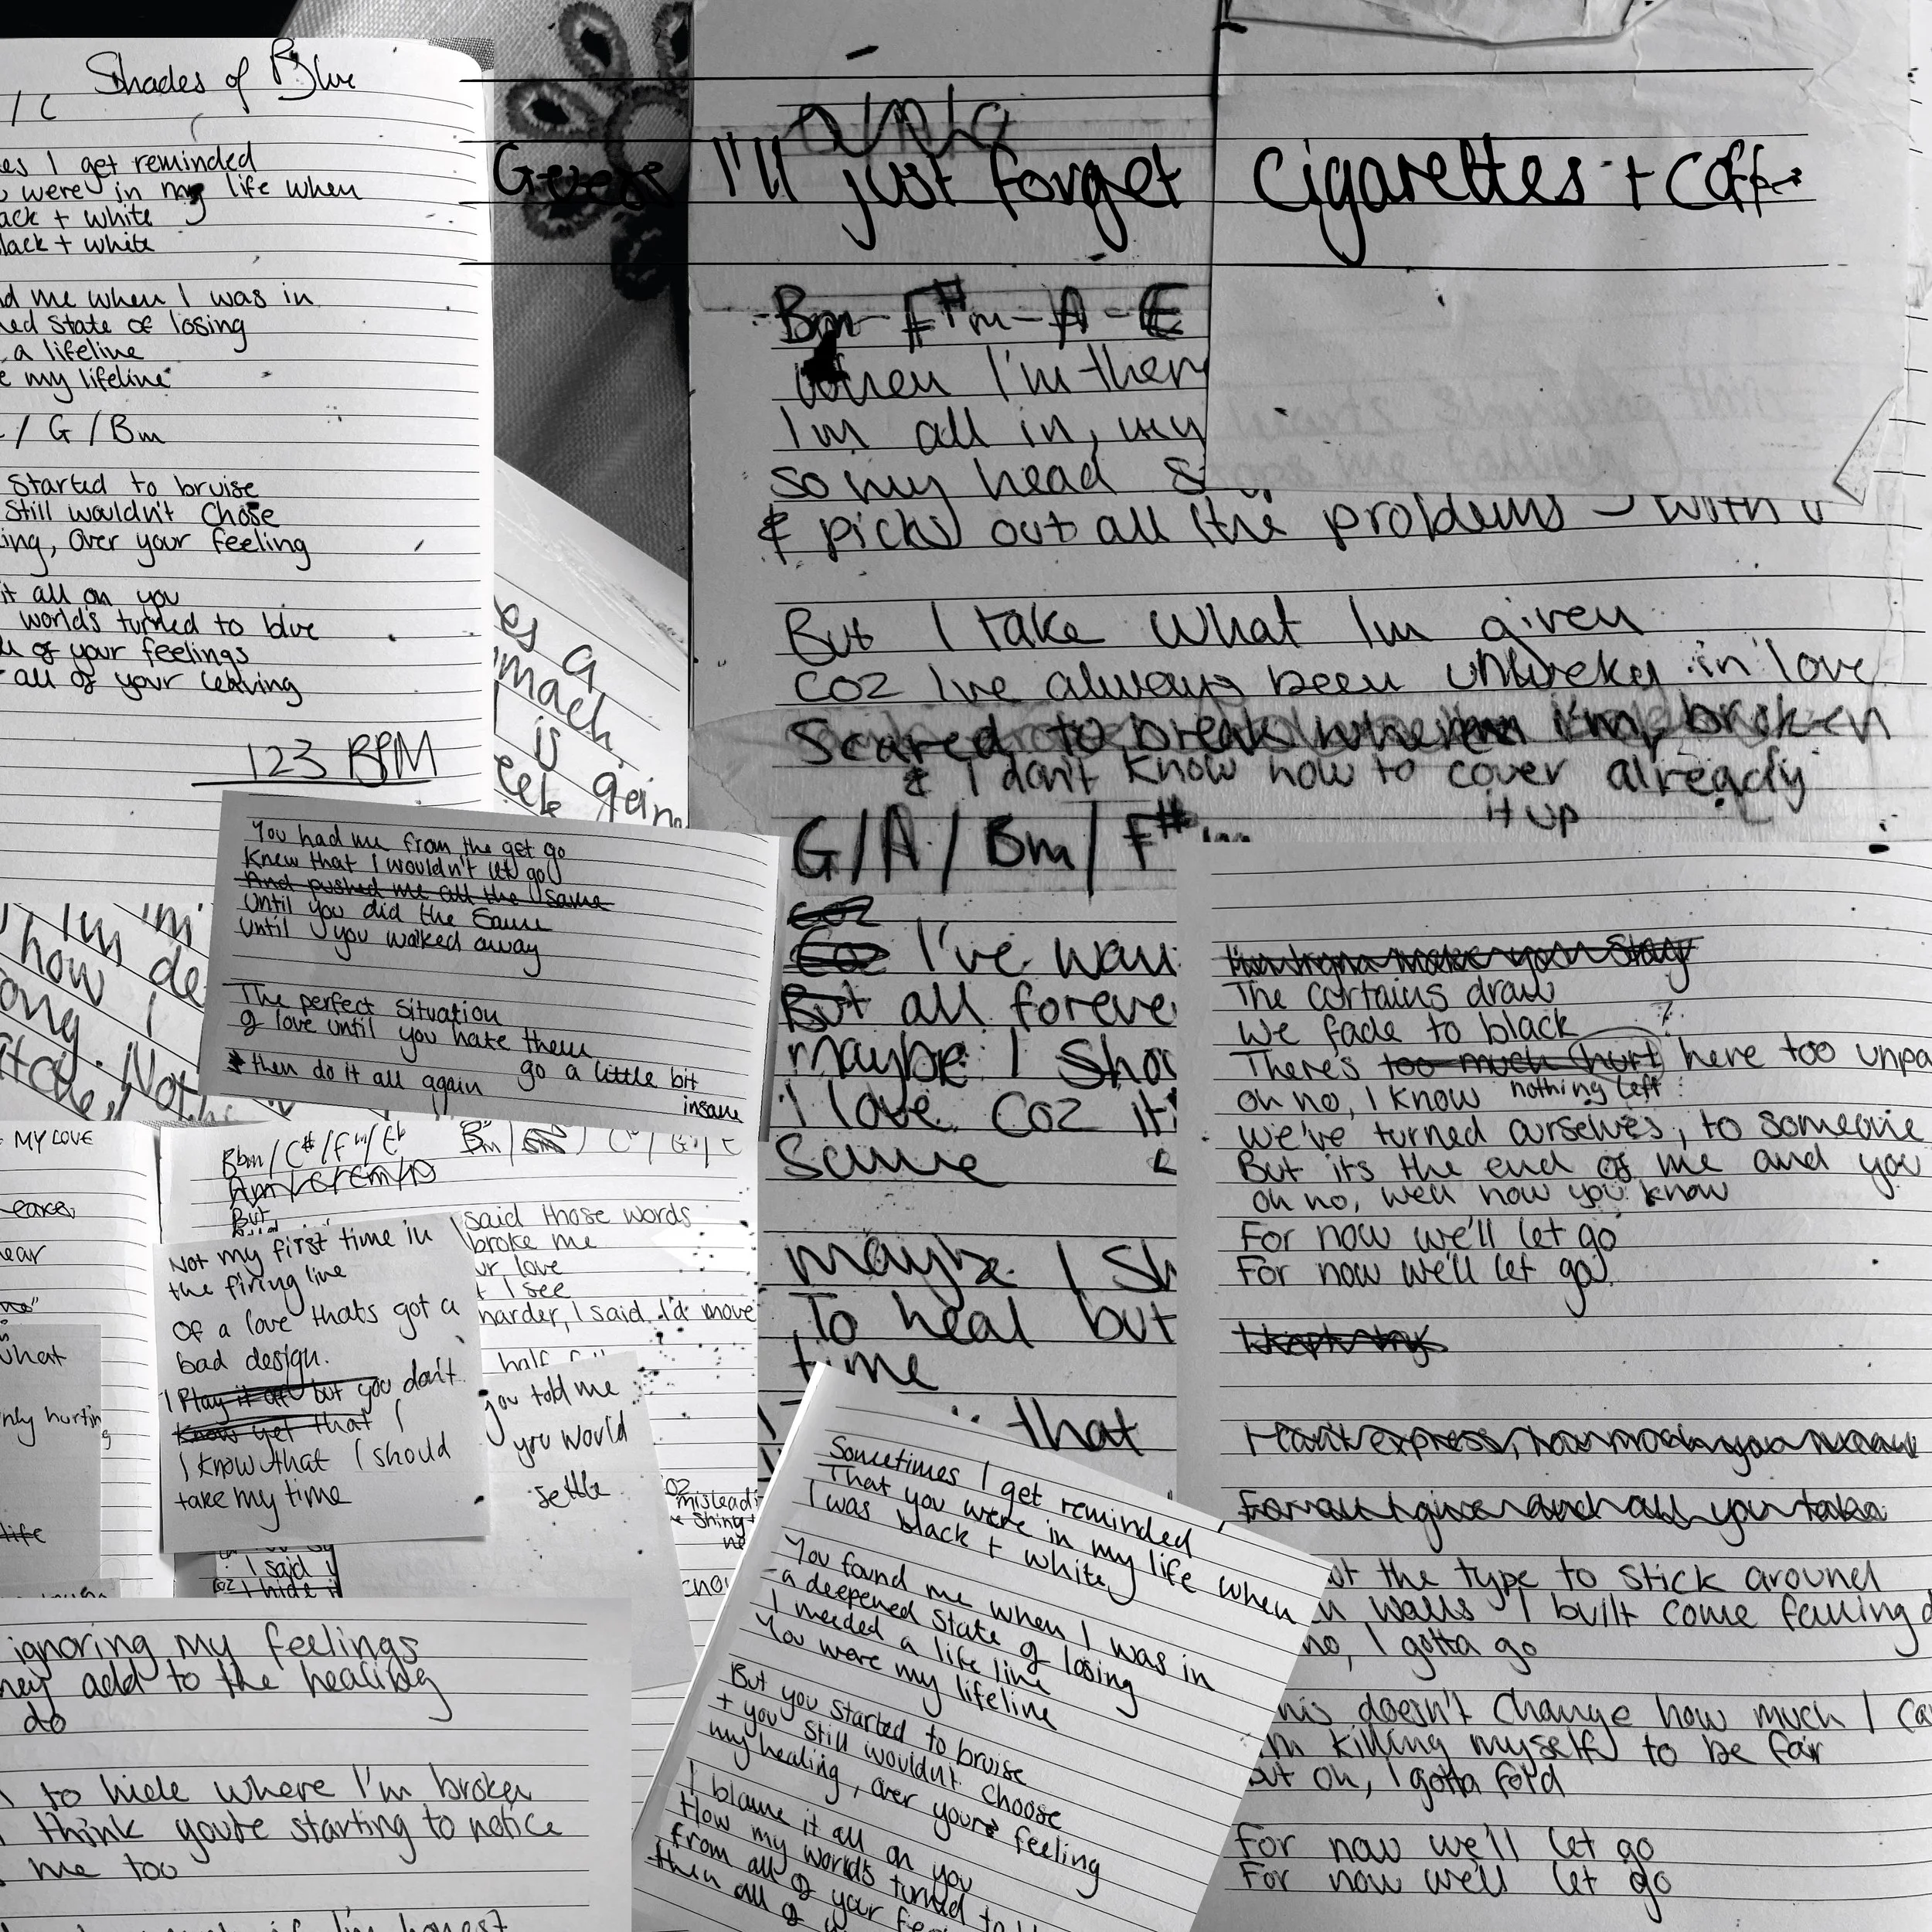 Shades of Blue
/ C
es I get reminded
were in my life when
ack + white
lack + white
d me when I was in
ned state of losing
a lifeline
e my lifeline
/ G / Bm
Started to bruise
Still wouldn't chose
ing, over your feeling
it all on you
worlds turned to blue
of your feelings
all of your leaving
123 BPM
es a
mach
is
Guess I'll just forget
cigarettes + coffee
Bm - F#m - A - E
When I'm ther
I'm all in, my
so my head s
& picks out all the problems with
But I take what Im given
coz Ive always been unlucky in love
Scared to break when i'm broken
already
& I don't know how to cover
it up
G/A/Bm/F#...
coz
Coz I've wan
But all foreve
maybe I sho
I love coz it
same
maybe I sh
To heal but
time
that
You had me from the get go
Knew that I wouldn't let go
And pushed me all the same
Until you did the same
Until you walked away
The perfect situation
of love until you hate them
& then do it all again
go a little bit
insane
Im
how I
ong. Not
MY LOVE
ear
what
nly hurting
life
Bbm / C# / Fm / Eb
But
said those words
broke me
ur love
t I see
harder, I said I'd move
half
Not my first time in
the firing line
Of a love thats got a
bad design.
I Play it off but you don't
Know yet that I
I know that I should
take my time
you told me
you would
settle
misleadi
I said
coz I hide i
ignoring my feelings
hey add to the healing
do
to hide where I'm broken
think you're starting to notice
me too
if I'm honest
Sometimes I get reminded
That you were in my life when
I was black + white
You found me when I was in
a deepened state of losing
I needed a life line
You were my lifeline
But you started to bruise
+ you still wouldn't choose
my healing, over your feeling
I blame it all on you
How my world's turned to bl
from all of your feel
then all of
I'm tryna make you stay
The curtains draw
We fade to black
There's too much hurt here too unpa
nothing left
oh no, I know
we've turned ourselves, to someone
But its the end of me and you
oh no, well now you know
For now we'll let go
For now we'll let go
I can't express, how much you mean
For all I give and all you take
ot the type to stick around
walls I built come falling d
no, I gotta go
his doesn't change how much I ca
m killing myself to be fair
but oh, I gotta fold
For now we'll let go
For now we'll let go